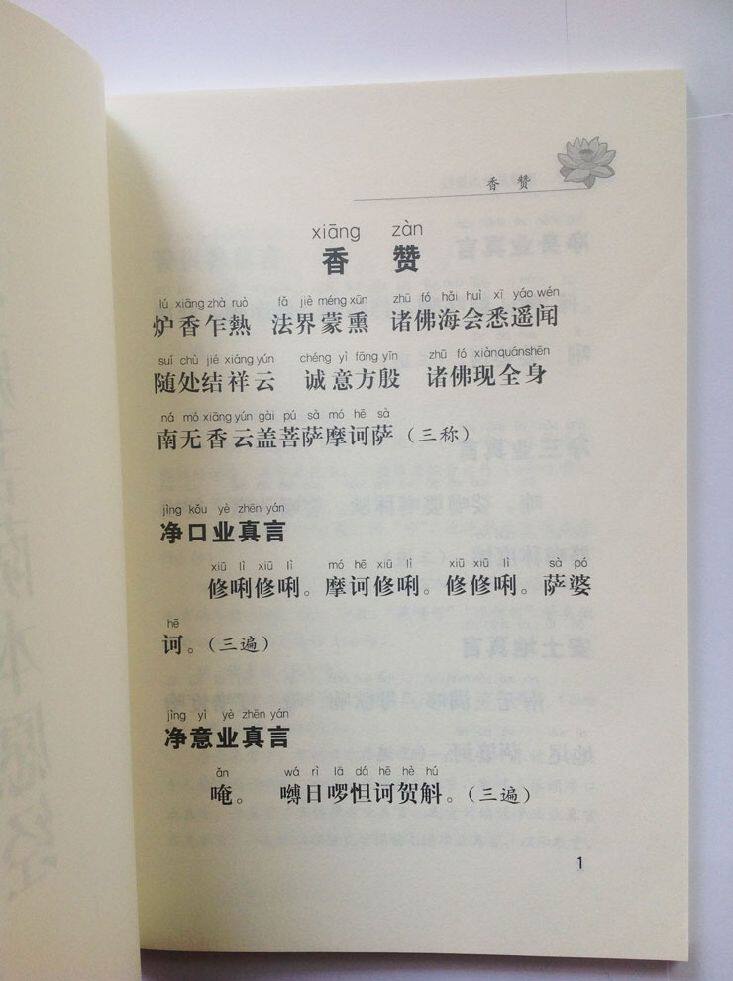 香 赞
xiāng zàn
香 赞
lú xiāng zhà ruò fǎ jiè méng xūn zhū fó hǎi huì xī yáo wén
炉香乍熱 法界蒙熏 诸佛海会悉遥闻
suí chù jié xiáng yún chéng yì fāng yīn zhū fó xiàn quán shēn
随处结祥云 诚意方殷 诸佛现全身
ná mó xiāng yún gài pú sà mó hē sà
南无香云盖菩萨摩诃萨（三称）
jìng kǒu yè zhēn yán
净口业真言
xiū lì xiū lì mó hē xiū lì xiū xiū lì sà pó
修唎修唎。摩诃修唎。修修唎。萨婆
hē
诃。（三遍）
jìng yì yè zhēn yán
净意业真言
ǎn wá rì lā dá hē hè hú
唵。 嚩日啰怛诃贺斛。（三遍）
1